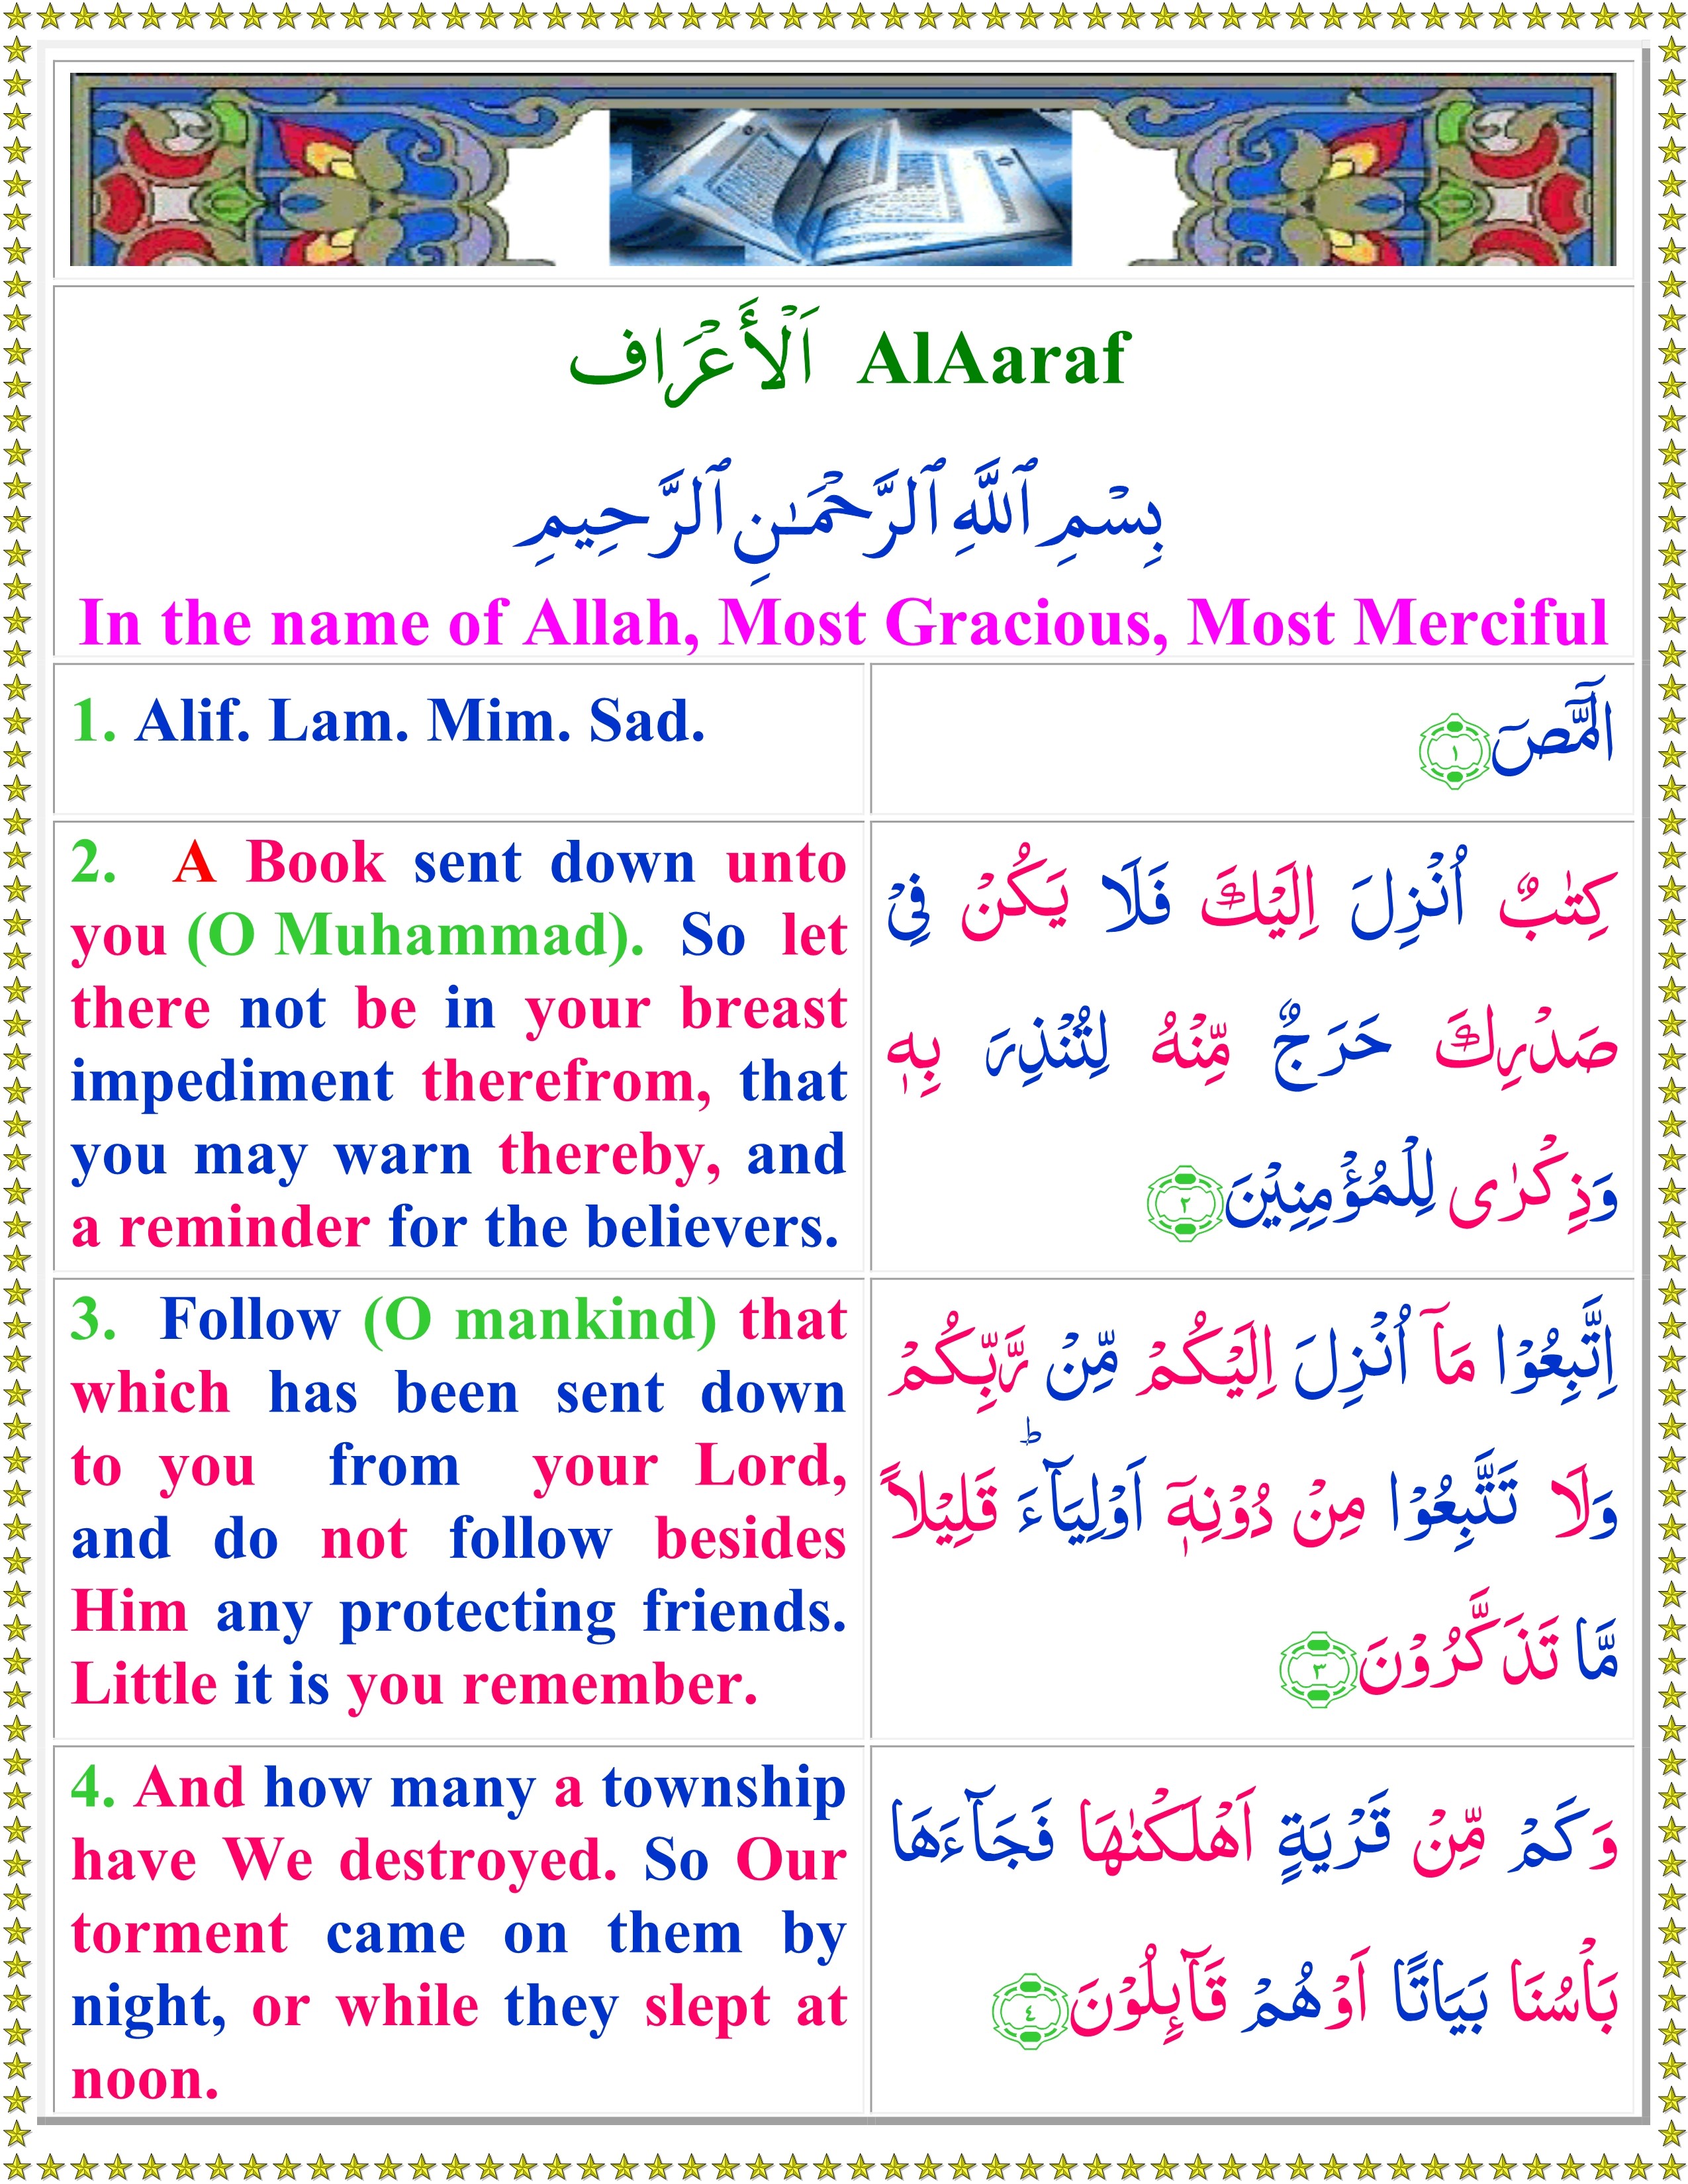 اَلْأَعْرَاف AlAaraf
بِسْمِ ٱللَّهِ ٱلرَّحْمَـٰنِ ٱلرَّحِيمِ
In the name of Allah, Most Gracious, Most Merciful
1. Alif. Lam. Mim. Sad.
الۤمّۤصۤ ١
2. A Book sent down unto
you (O Muhammad). So let
there not be in your breast
impediment therefrom, that
you may warn thereby, and
a reminder for the believers.
كِتٰبٌ اُنْزِلَ اِلَيْكَ فَلَا يَكُنْ فِىْ
صَدْرِكَ حَرَجٌ مِّنْهُ لِتُنْذِرَ بِهٖ
وَذِكْرٰى لِلْمُؤْمِنِيْنَ ٢
3. Follow (O mankind) that
which has been sent down
to you from your Lord,
and do not follow besides
Him any protecting friends.
Little it is you remember.
اِتَّبِعُوْا مَاۤ اُنْزِلَ اِلَيْكُمْ مِّنْ رَّبِّكُمْ
وَلَا تَتَّبِعُوْا مِنْ دُوْنِهٖۤ اَوْلِيَآءَ ؕ قَلِيْلاً
مَّا تَذَكَّرُوْنَ ٣
4. And how many a township
have We destroyed. So Our
torment came on them by
night, or while they slept at
noon.
وَكَمْ مِّنْ قَرْيَةٍ اَهْلَكْنٰهَا فَجَآءَهَا
بَاْسُنَا بَيَاتًا اَوْ هُمْ قَآٮِٕلُوْنَ ٤